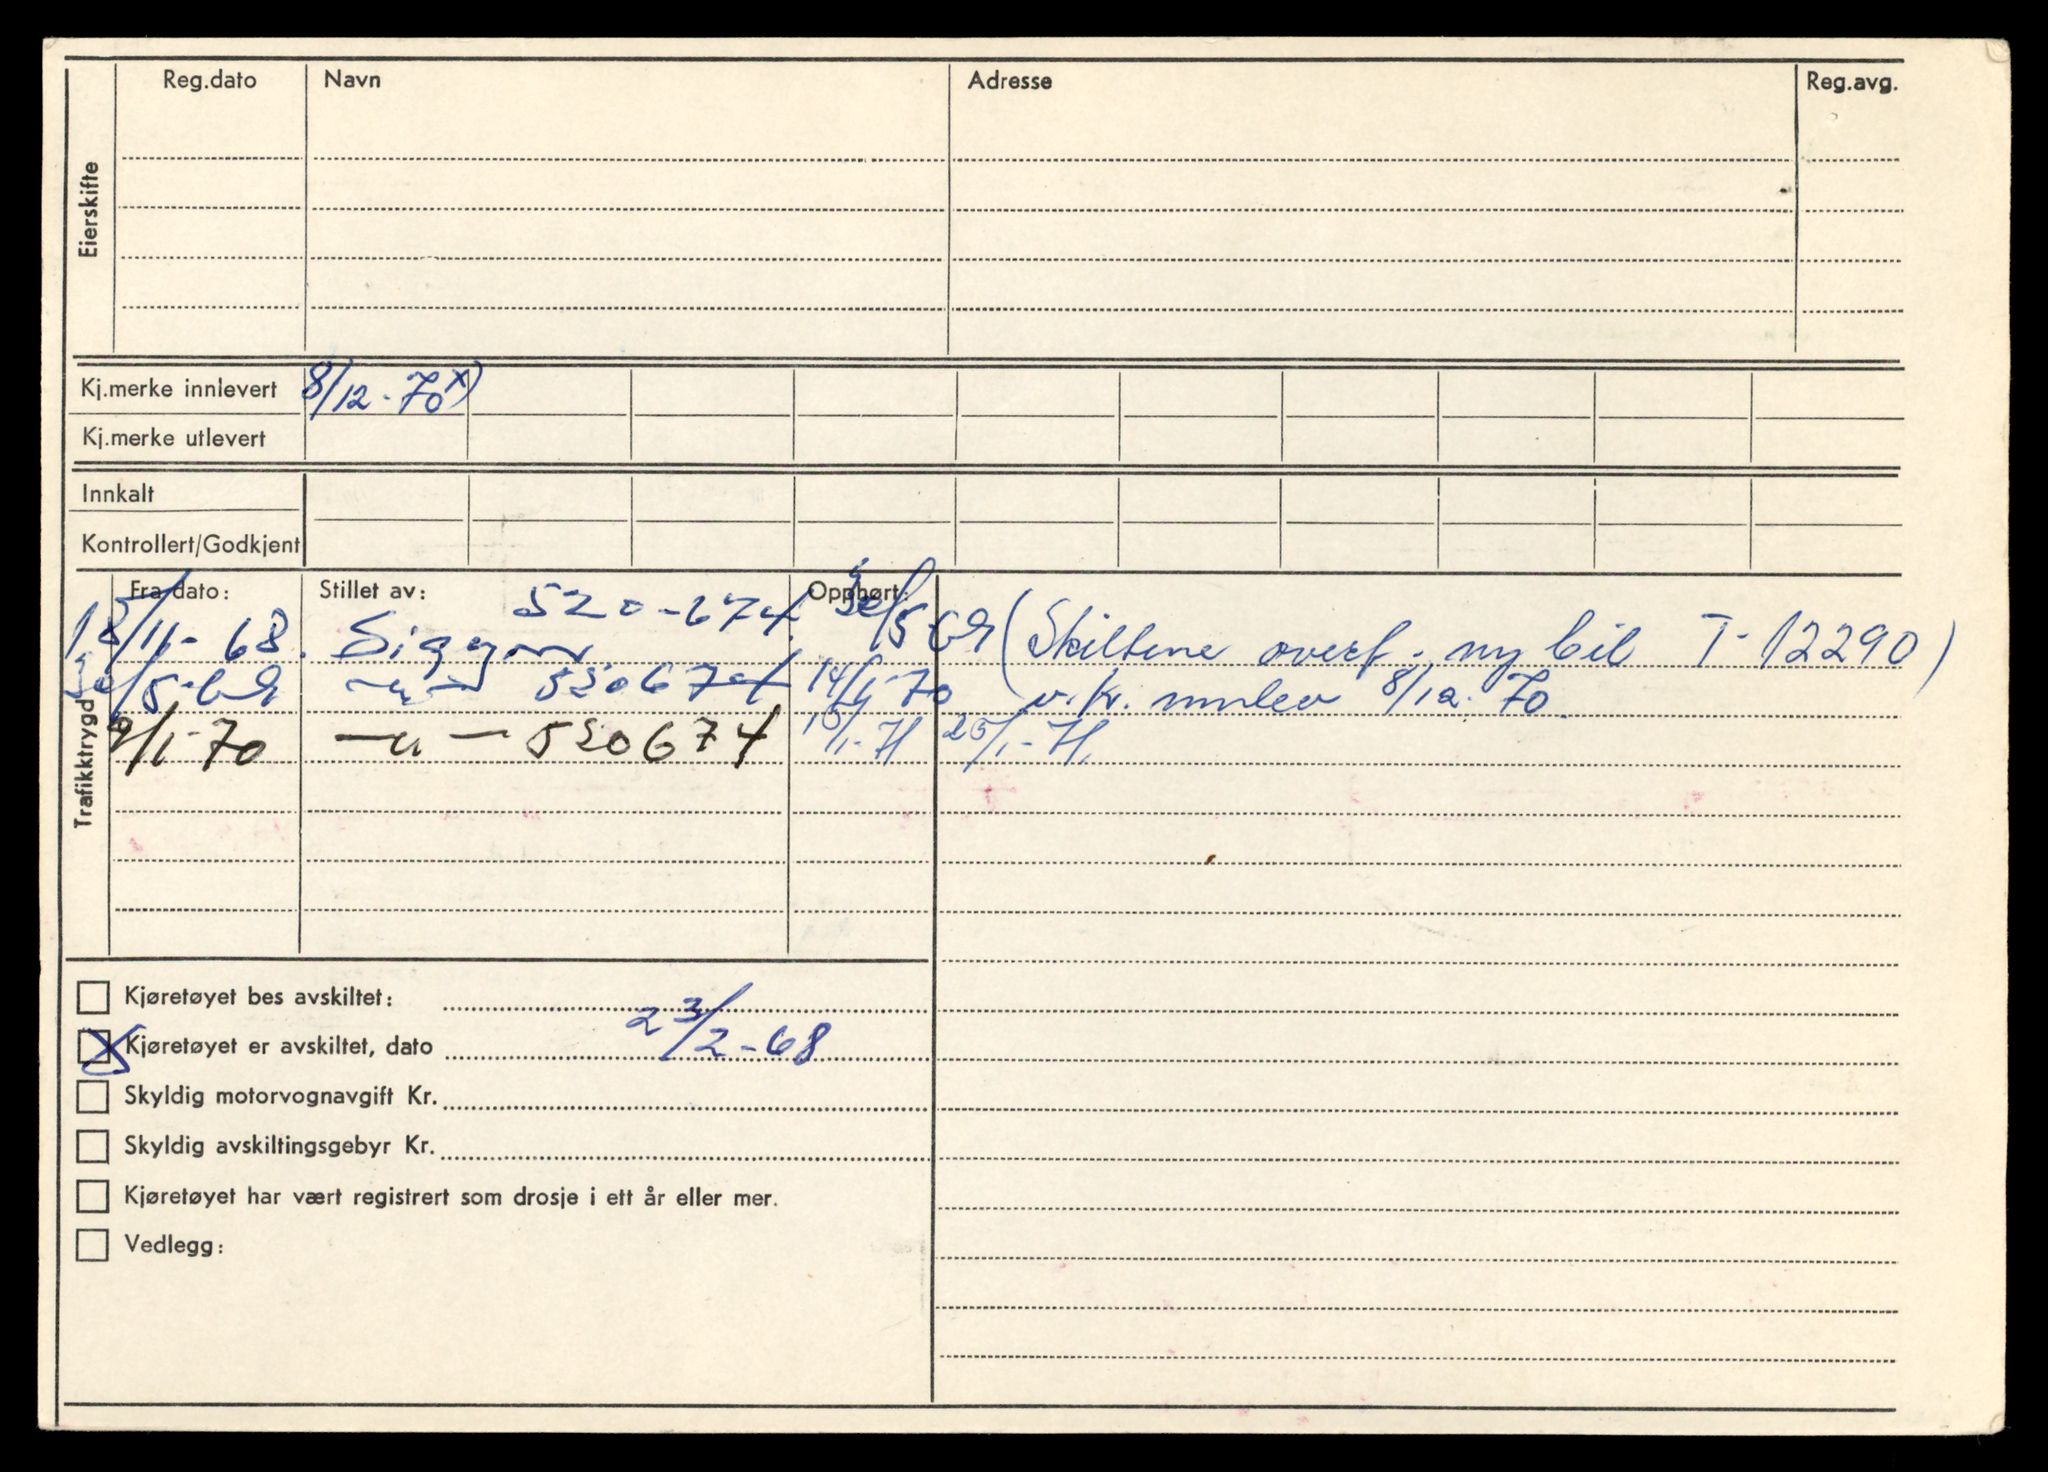 Reg.dato Navn Adresse Reg.avg.
Eierskifte
Kj.merke innlevert 8/12-70 x)
Kj.merke utlevert
Innkalt
Kontrollert/Godkjent
Trafikktrygd
Fra dato: Stillet av: Opphørt:
520-674
/11-68. Sigyn /5-69 (Skiltene overf. ny bil T-12290)
/5-69 -"- 520674 14/1-70 v.kr. innlev 8/12-70
9/1-70 -"- 520674 15/1-71 25/1-71
Kjøretøyet bes avskiltet:
Kjøretøyet er avskiltet, dato 23/2-68
Skyldig motorvognavgift Kr.
Skyldig avskiltingsgebyr Kr.
Kjøretøyet har vært registrert som drosje i ett år eller mer.
Vedlegg: